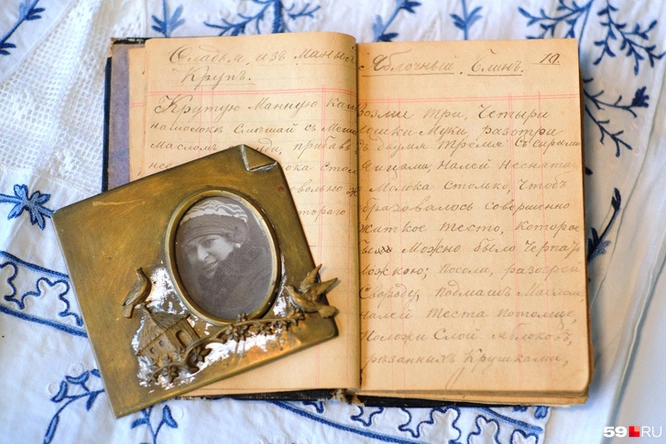 Оладьи изъ манныхъ
Крупъ.
Крутую манную каш
на молокѣ смѣшай съ
масломъ прибавь
молока стол
Яблочный Блинъ. 19.
Возьми три, четыри
ложки муки, разотри
съ двумя тремя сырыми
яйцами, налей неснята
молока столько, чтобъ
образовалось совершенно
житкое тесто, которое
можно было черпать
ложкою; после, разогрей
сковороду, подмажь масломъ,
налей теста потомъ
положи слой яблоковъ,
срезанныхъ крушками,
59.RU